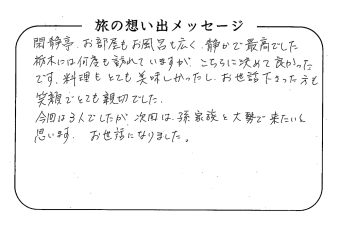 旅の想い出メッセージ
閑静亭、お部屋もお風呂も広く、静かで最高でした
栃木には何度も訪れていますが、こちらに決めて良かった
です。料理もとても美味しかったし、お世話下さった方も
笑顔でとても親切でした。
今回は3人でしたが、次回は、孫家族と大勢で来たいと
思います。 お世話になりました。